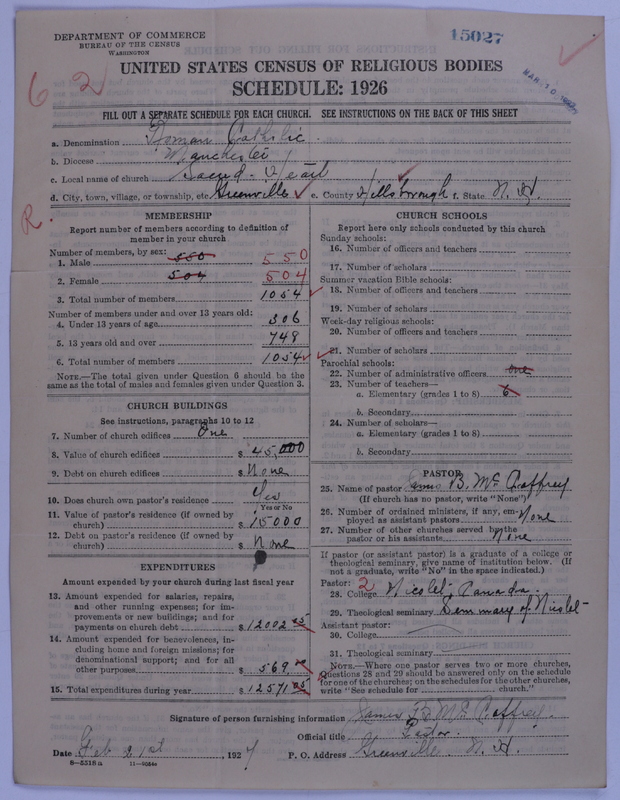 DEPARTMENT OF COMMERCE
BUREAU OF THE CENSUS
WASHINGTON
15027
62
UNITED STATES CENSUS OF RELIGIOUS BODIES
SCHEDULE: 1926
FILL OUT A SEPARATE SCHEDULE FOR EACH CHURCH. SEE INSTRUCTIONS ON THE BACK OF THIS SHEET
a. Denomination Roman Catholic
b. Diocese Manchester
c. Local name of church Sacred Heart
d. City, town, village, or township, etc. Greenville e. County Hillsborough f. State N. H.
R.
MEMBERSHIP
Report number of members according to definition of
member in your church
Number of members, by sex:
1. Male 550 550
2. Female 504 504
3. Total number of members 1054
Number of members under and over 13 years old:
4. Under 13 years of age 306
5. 13 years old and over 748
6. Total number of members 1054
NOTE.—The total given under Question 6 should be
same as the total of males and females given under Question 3.
CHURCH BUILDINGS
See instructions, paragraphs 10 to 12
7. Number of church edifices One
8. Value of church edifices $ 45,000
9. Debt on church edifices $ None
10. Does church own pastor's residence Yes
Yes or No
11. Value of pastor's residence (if owned by
church) $ 15000
12. Debt on pastor's residence (if owned by
church) $ None
EXPENDITURES
Amount expended by your church during last fiscal year
13. Amount expended for salaries, repairs,
and other running expenses; for im-
provements or new buildings; and for
payments on church debt $ 12002
14. Amount expended for benevolences, in-
cluding home and foreign missions; for
denominational support; and for all
other purposes $ 569.
15. Total expenditures during year $ 12571
CHURCH SCHOOLS
Report here only schools conducted by this church
Sunday schools:
16. Number of officers and teachers
17. Number of scholars
Summer vacation Bible schools:
18. Number of officers and teachers
19. Number of scholars
Week-day religious schools:
20. Number of officers and teachers
21. Number of scholars
Parochial schools:
22. Number of administrative officers one
23. Number of teachers—
a. Elementary (grades 1 to 8) 6
b. Secondary
24. Number of scholars—
a. Elementary (grades 1 to 8)
b. Secondary
PASTOR
25. Name of pastor James B. McCaffrey
(If church has no pastor, write "None")
26. Number of ordained ministers, if any, em-
ployed as assistant pastors None
27. Number of other churches served by the
pastor or his assistants None
If pastor (or assistant pastor) is a graduate of a college or
theological seminary, give name of institution below. (If
not a graduate, write "No" in the space indicated.)
Pastor: 2
28. College Nicolet, Canada
29. Theological seminary Seminary of Nicolet
Assistant pastor:
30. College
31. Theological seminary
NOTE.—Where one pastor serves two or more churches,
Questions 28 and 29 should be answered only on the schedule
for one of the churches; on the schedules for the other churches,
write "See schedule for church."
Signature of person furnishing information James B. McCaffrey
Official title Pastor.
Date Feb 21st, 1927 P. O. Address Greenville N. H.
8—5518a 11—9034a